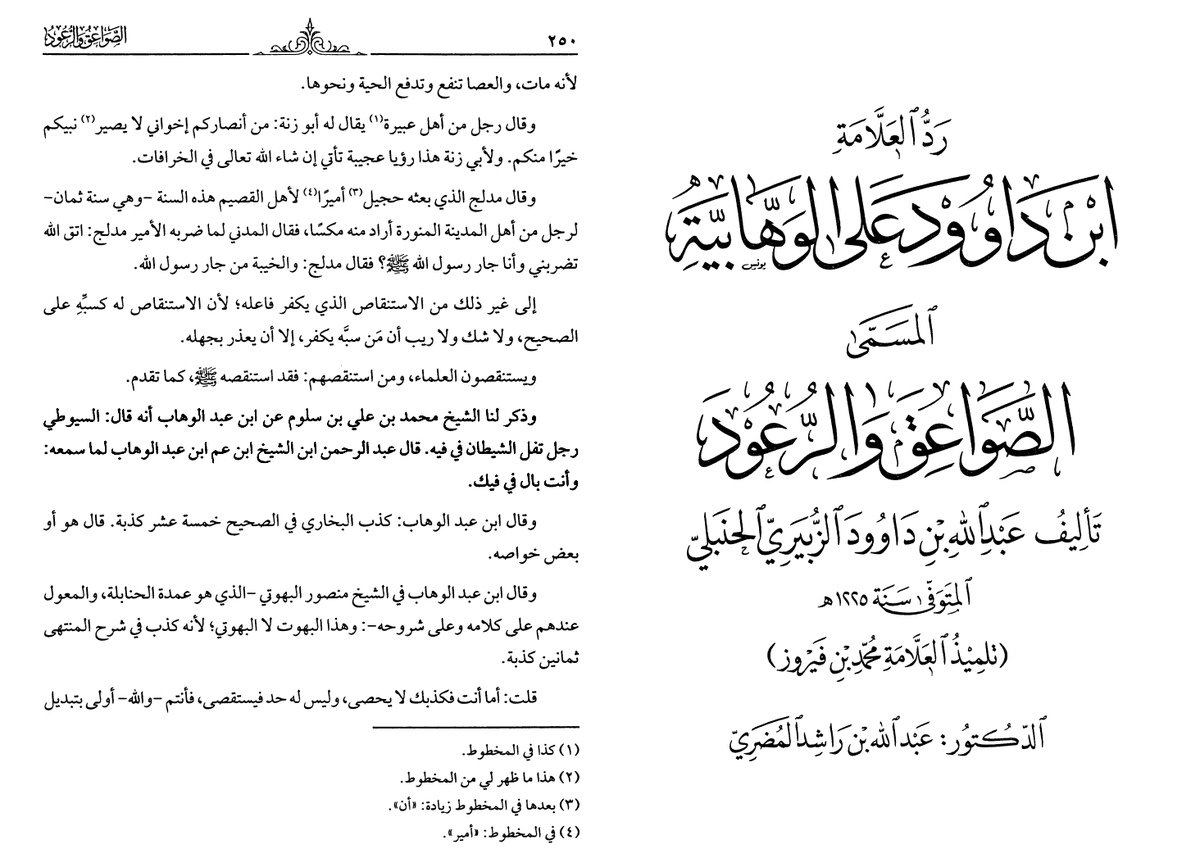 رَدُّ ٱلعَلَّامَةِ
ابْنِ دَاوُودَ عَلَى الوَهَّابِيَّةِ
يونس
ٱلمُسَمَّىٰ
الصَّوَاعِقَ وَالرُّعُودَ
تَأْلِيفُ عَبْدِ ٱللهِ بْنِ دَاوُودَ ٱلزُّبَيْرِيّ ٱلحَنبَلِيّ
ٱلمُتَوَفَّىٰ سَنَة ١٢٢٥هـ
(تِلمِيْذُ ٱلعَلَّامَةِ مُحَمَّدِ بْنِ فَيْرُوز)
ٱلدّكتُور: عَبْد ٱلله بْن رَاشِد ٱلمُضَرِيّ
٢٥٠
الصَّوَاعِقُ وَالرُّعُودُ
لأنه مات، والعصا تنفع وتدفع الحية ونحوها.
وقال رجل من أهل عبيرة(١) يقال له أبو زنة: من أنصاركم إخواني لا يصير(٢) نبيكم
خيرًا منكم. ولأبي زنة هذا رؤيا عجيبة تأتي إن شاء الله تعالى في الخرافات.
وقال مدلج الذي بعثه حجيل(٣) أميرًا(٤) لأهل القصيم هذه السنة -وهي سنة ثمان-
لرجل من أهل المدينة المنورة أراد منه مكسًا، فقال المدني لما ضربه الأمير مدلج: اتق الله
تضربني وأنا جار رسول الله ﷺ؟ فقال مدلج: والخيبة من جار رسول الله.
إلى غير ذلك من الاستنقاص الذي يكفر فاعله؛ لأن الاستنقاص له كسبِّهِ على
الصحيح، ولا شك ولا ريب أن مَن سبَّه يكفر، إلا أن يعذر بجهله.
ويستنقصون العلماء، ومن استنقصهم: فقد استنقصه ﷺ، كما تقدم.
وذكر لنا الشيخ محمد بن علي بن سلوم عن ابن عبد الوهاب أنه قال: السيوطي
رجل تفل الشيطان في فيه. قال عبد الرحمن ابن الشيخ ابن عم ابن عبد الوهاب لما سمعه:
وأنت بال في فيك.
وقال ابن عبد الوهاب: كذب البخاري في الصحيح خمسة عشر كذبة. قال هو أو
بعض خواصه.
وقال ابن عبد الوهاب في الشيخ منصور البهوتي -الذي هو عمدة الحنابلة، والمعول
عندهم على كلامه وعلى شروحه-: وهذا البهوت لا البهوتي؛ لأنه كذب في شرح المنتهى
ثمانين كذبة.
قلت: أما أنت فكذبك لا يحصى، وليس له حد فيستقصى، فأنتم -والله- أولى بتبديل
(١) كذا في المخطوط.
(٢) هذا ما ظهر لي من المخطوط.
(٣) بعدها في المخطوط زيادة: «أن».
(٤) في المخطوط: «أمير».